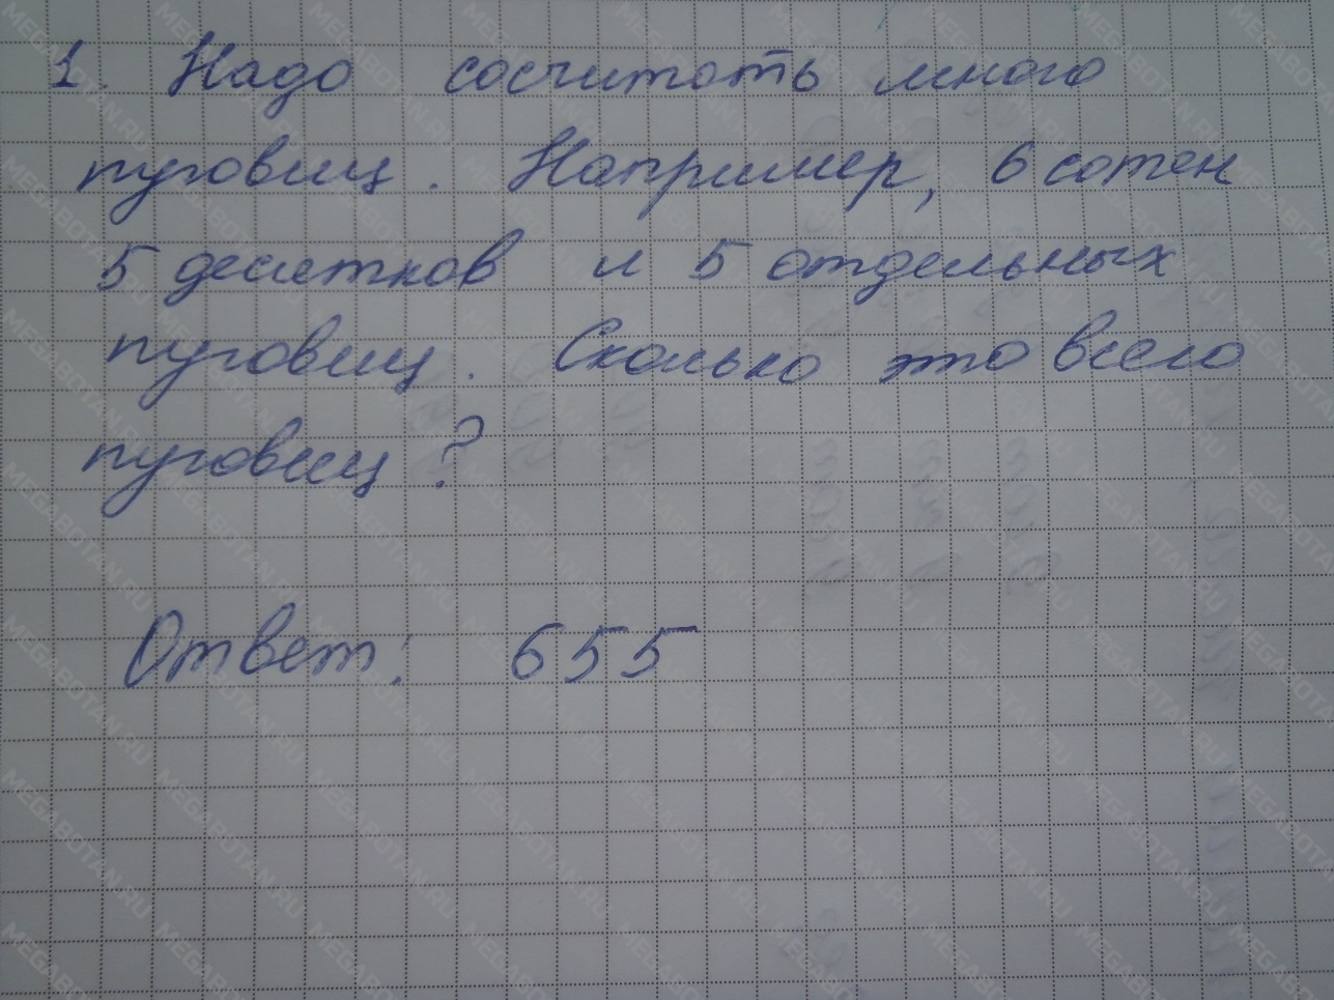 1. Надо сосчитать много
пуговиц. Например, 6 сотен
5 десятков и 5 отдельных
пуговиц. Сколько это всего
пуговиц?
Ответ: 655